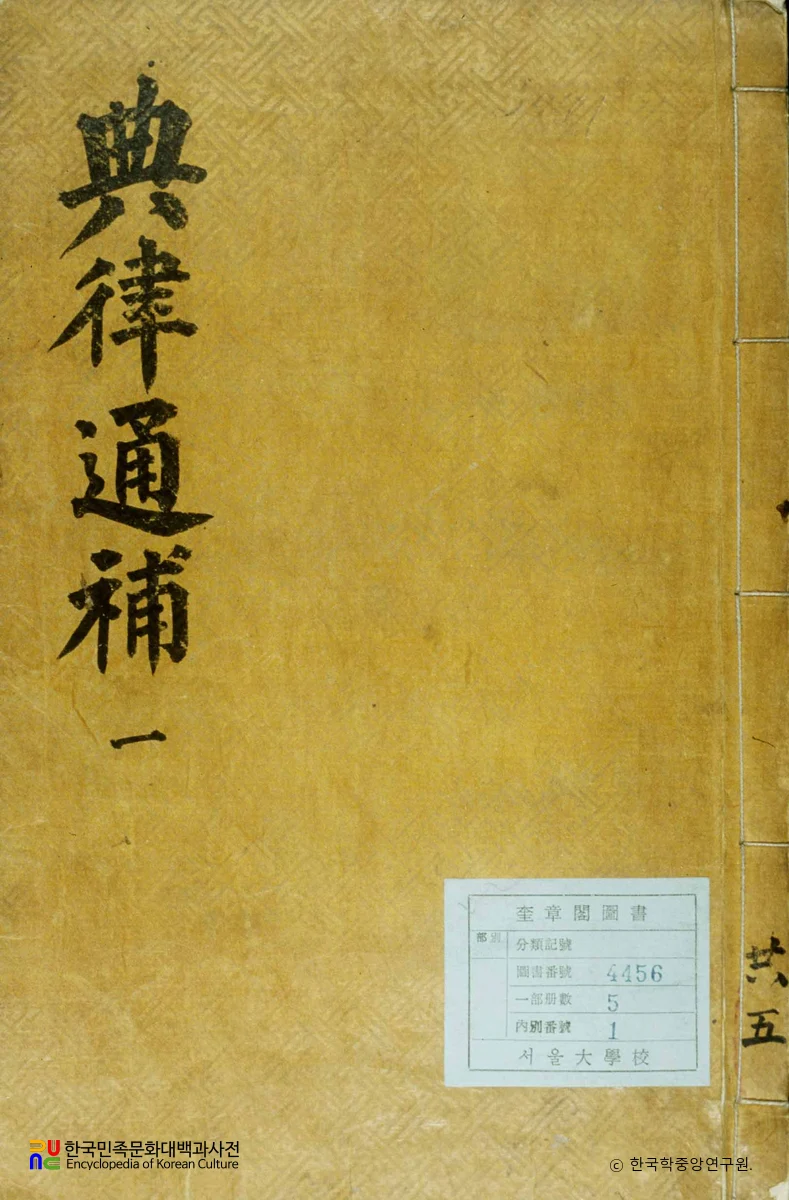 典律通補 一
奎章閣圖書
部別
分類記號
圖書番號 4456
一部册數 5
內別番號 1
서울大學校
共五
한국민족문화대백과사전
Encyclopedia of Korean Culture
ⓒ 한국학중앙연구원.